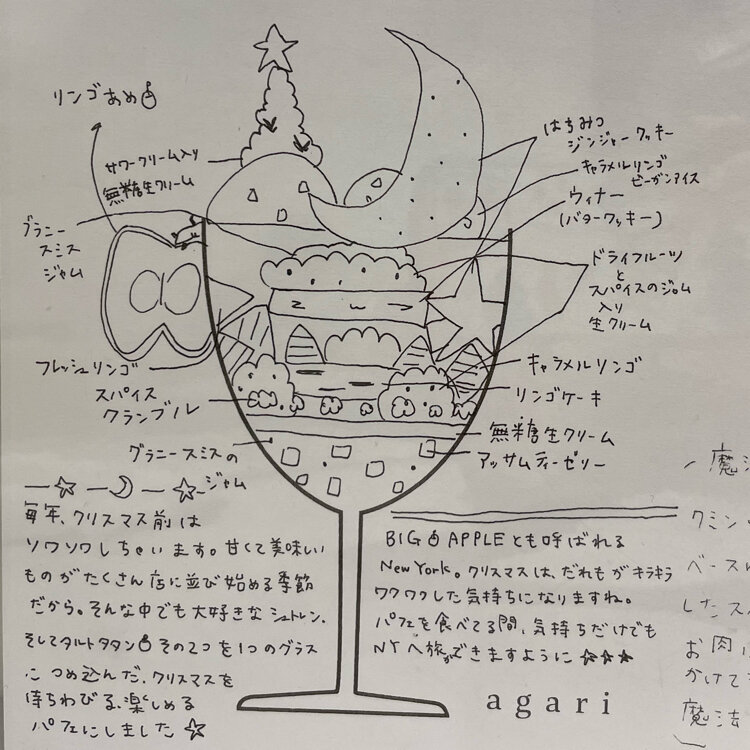 リンゴあめ
サワークリーム入り
無糖生クリーム
グラニー
スミス
ジャム
フレッシュリンゴ
スパイス
クランブル
グラニースミスの
ジャム
はちみつ
ジンジャークッキー
キャラメルリンゴ
ビーガンアイス
ウィナー
(バタークッキー)
ドライフルーツ
と
スパイスのジャム
入り
生クリーム
キャラメルリンゴ
リンゴケーキ
無糖生クリーム
アッサムティーゼリー
毎年、クリスマス前は
ソワソワしちゃいます。甘くて美味しい
ものがたくさん店に並び始める季節
だから。そんな中でも大好きなシュトレン、
そしてタルトタタン その2つを1つのグラス
に つめ込んだ、クリスマスを
待ちわびる、楽しめる
パフェにしました ☆
BIG APPLEとも呼ばれる
New York。クリスマスは、だれもがキラキラ
ワクワクした気持ちになりますね。
パフェを食べてる間、気持ちだけでも
NYへ旅ができますように ☆☆☆
agari
魔法
クミン
ベース
した
お肉
かけて
魔法